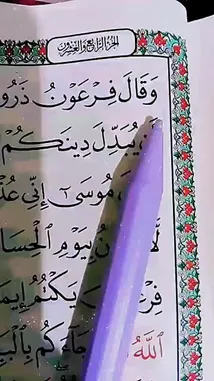 الجزء الرابع والعشرون
وَقَالَ فِرْعَوْنُ ذَرُو
يُبَدِّلَ دِينَكُمْ
مُوسَىٰٓ إِنِّي عُذْ
بِيَوْمِ ٱلْحِسَا
يَكْتُمُ إِيمَ
ٱللَّهُ جَآءَكُم بِٱلْبَيِّ